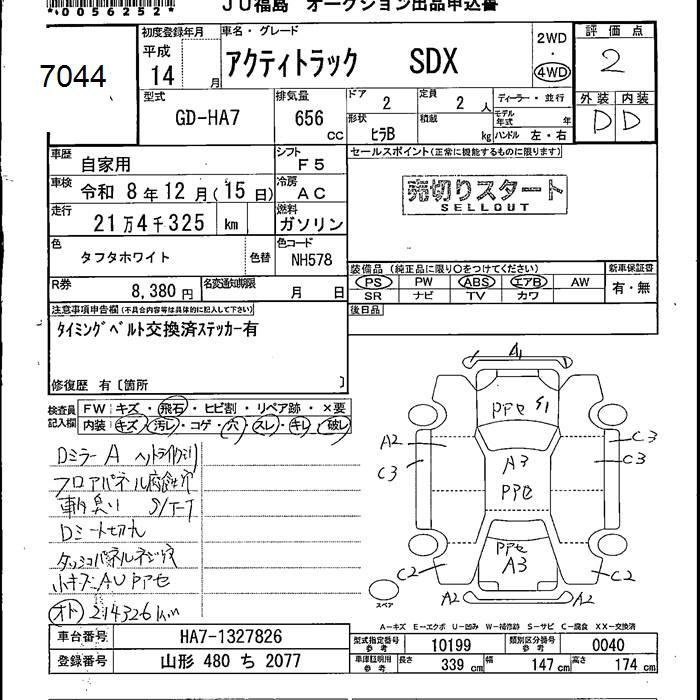 *0056252*
JU福島 オークション出品申込書
7044
初度登録年月
平成
14 月
車名・グレード
アクティトラック SDX
2WD
・
4WD
評価点
2
型式
GD-HA7
排気量
656
CC
ドア
2
定員
2 人
形状
ヒラB
積載
kg
ディーラー・並行
モデル年式 年
ハンドル 左・右
外装 内装
D D
車歴
自家用
シフト
F5
セールスポイント(正常に機能するものに限ります)
売切りスタート
SELLOUT
車検
令和 8年 12月(15日)
冷房
AC
走行
21万4千325 km
燃料
ガソリン
色
タフタホワイト
色替
色コード
NH578
装備品 (純正品に限り○をつけてください)
新車保証書
PS PW ABS エアB AW
SR ナビ TV カワ
有・無
R券
8,380 円
名変通知期限
月 日
後日品
注意事項申告欄(不具合内容等は具体的に記入して下さい)
タイミングベルト交換済ステッカー有
修復歴 有〔箇所 〕
検査員
記入欄
FW キズ・飛石・ヒビ割・リペア跡・×要
内装 キズ・汚レ・コゲ・穴・スレ・キレ・破レ
Dミラー A
フロアパネル腐食穴
車内臭い
Dシート切れ
小キズ AU PPセ
オド 214326km
A
PPセ S1
A2
C3
C3
C3
A3
PPセ
PPセ
A3
C2
C2
A2
A2
スペア
A-キズ E-エクボ U-凹み W-補修跡 S-サビ C-腐食 XX-交換済
車台番号
HA7-1327826
登録番号
山形 480 ち 2077
型式指定番号
参考
10199
類別区分番号
参考
0040
車庫証明用
参考
長さ 339 cm 幅 147 cm 高さ 174 cm